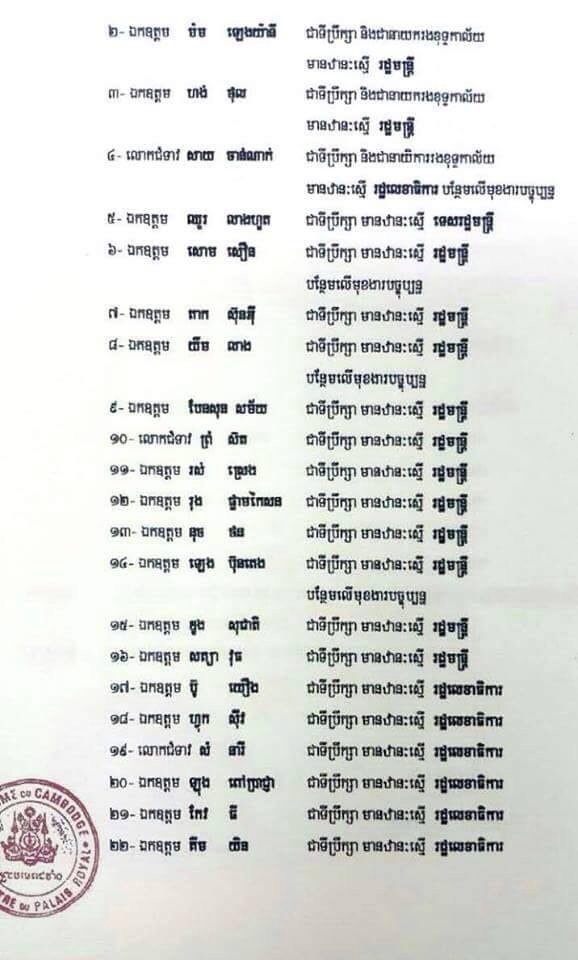 ២- ឯកឧត្តម ម៉ម ឡេងយ៉ានី ជាទីប្រឹក្សា និងជានាយករងខុទ្ទកាល័យ
មានឋានៈស្មើ រដ្ឋមន្ត្រី
៣- ឯកឧត្តម ហង់ ផុល ជាទីប្រឹក្សា និងជានាយករងខុទ្ទកាល័យ
មានឋានៈស្មើ រដ្ឋមន្ត្រី
៤- លោកជំទាវ សាយ ចាន់ណាក់ ជាទីប្រឹក្សា និងជានាយិការងខុទ្ទកាល័យ
មានឋានៈស្មើ រដ្ឋលេខាធិការ បន្ថែមលើមុខងារបច្ចុប្បន្ន
៥- ឯកឧត្តម ឈួរ លាងហួត ជាទីប្រឹក្សា មានឋានៈស្មើ ទេសរដ្ឋមន្ត្រី
៦- ឯកឧត្តម សោម សឿន ជាទីប្រឹក្សា មានឋានៈស្មើ រដ្ឋមន្ត្រី
បន្ថែមលើមុខងារបច្ចុប្បន្ន
៧- ឯកឧត្តម តាក ស៊ុនអ៊ី ជាទីប្រឹក្សា មានឋានៈស្មើ រដ្ឋមន្ត្រី
៨- ឯកឧត្តម យឹម លាង ជាទីប្រឹក្សា មានឋានៈស្មើ រដ្ឋមន្ត្រី
បន្ថែមលើមុខងារបច្ចុប្បន្ន
៩- ឯកឧត្តម បែនសុន សម័យ ជាទីប្រឹក្សា មានឋានៈស្មើ រដ្ឋមន្ត្រី
១០- លោកជំទាវ ព្រំ សិត ជាទីប្រឹក្សា មានឋានៈស្មើ រដ្ឋមន្ត្រី
១១- ឯកឧត្តម រស់ ស្រេង ជាទីប្រឹក្សា មានឋានៈស្មើ រដ្ឋមន្ត្រី
១២- ឯកឧត្តម រុង ផ្លាមកែសន ជាទីប្រឹក្សា មានឋានៈស្មើ រដ្ឋមន្ត្រី
១៣- ឯកឧត្តម នុច ថន ជាទីប្រឹក្សា មានឋានៈស្មើ រដ្ឋមន្ត្រី
១៤- ឯកឧត្តម ឡេង ប៊ុនតេង ជាទីប្រឹក្សា មានឋានៈស្មើ រដ្ឋមន្ត្រី
បន្ថែមលើមុខងារបច្ចុប្បន្ន
១៥- ឯកឧត្តម តូង សុជាតិ ជាទីប្រឹក្សា មានឋានៈស្មើ រដ្ឋមន្ត្រី
១៦- ឯកឧត្តម សត្យា វុធ ជាទីប្រឹក្សា មានឋានៈស្មើ រដ្ឋមន្ត្រី
១៧- ឯកឧត្តម ប៊ូ យឿង ជាទីប្រឹក្សា មានឋានៈស្មើ រដ្ឋលេខាធិការ
១៨- ឯកឧត្តម ហ្គុក ស៊ីវ ជាទីប្រឹក្សា មានឋានៈស្មើ រដ្ឋលេខាធិការ
១៩- លោកជំទាវ សំ នារី ជាទីប្រឹក្សា មានឋានៈស្មើ រដ្ឋលេខាធិការ
២០- ឯកឧត្តម ឡុង ពៅប្រាជ្ញា ជាទីប្រឹក្សា មានឋានៈស្មើ រដ្ឋលេខាធិការ
២១- ឯកឧត្តម កែវ ធី ជាទីប្រឹក្សា មានឋានៈស្មើ រដ្ឋលេខាធិការ
២២- ឯកឧត្តម គឹម យិន ជាទីប្រឹក្សា មានឋានៈស្មើ រដ្ឋលេខាធិការ
CAMBODGE
PALAIS ROYAL